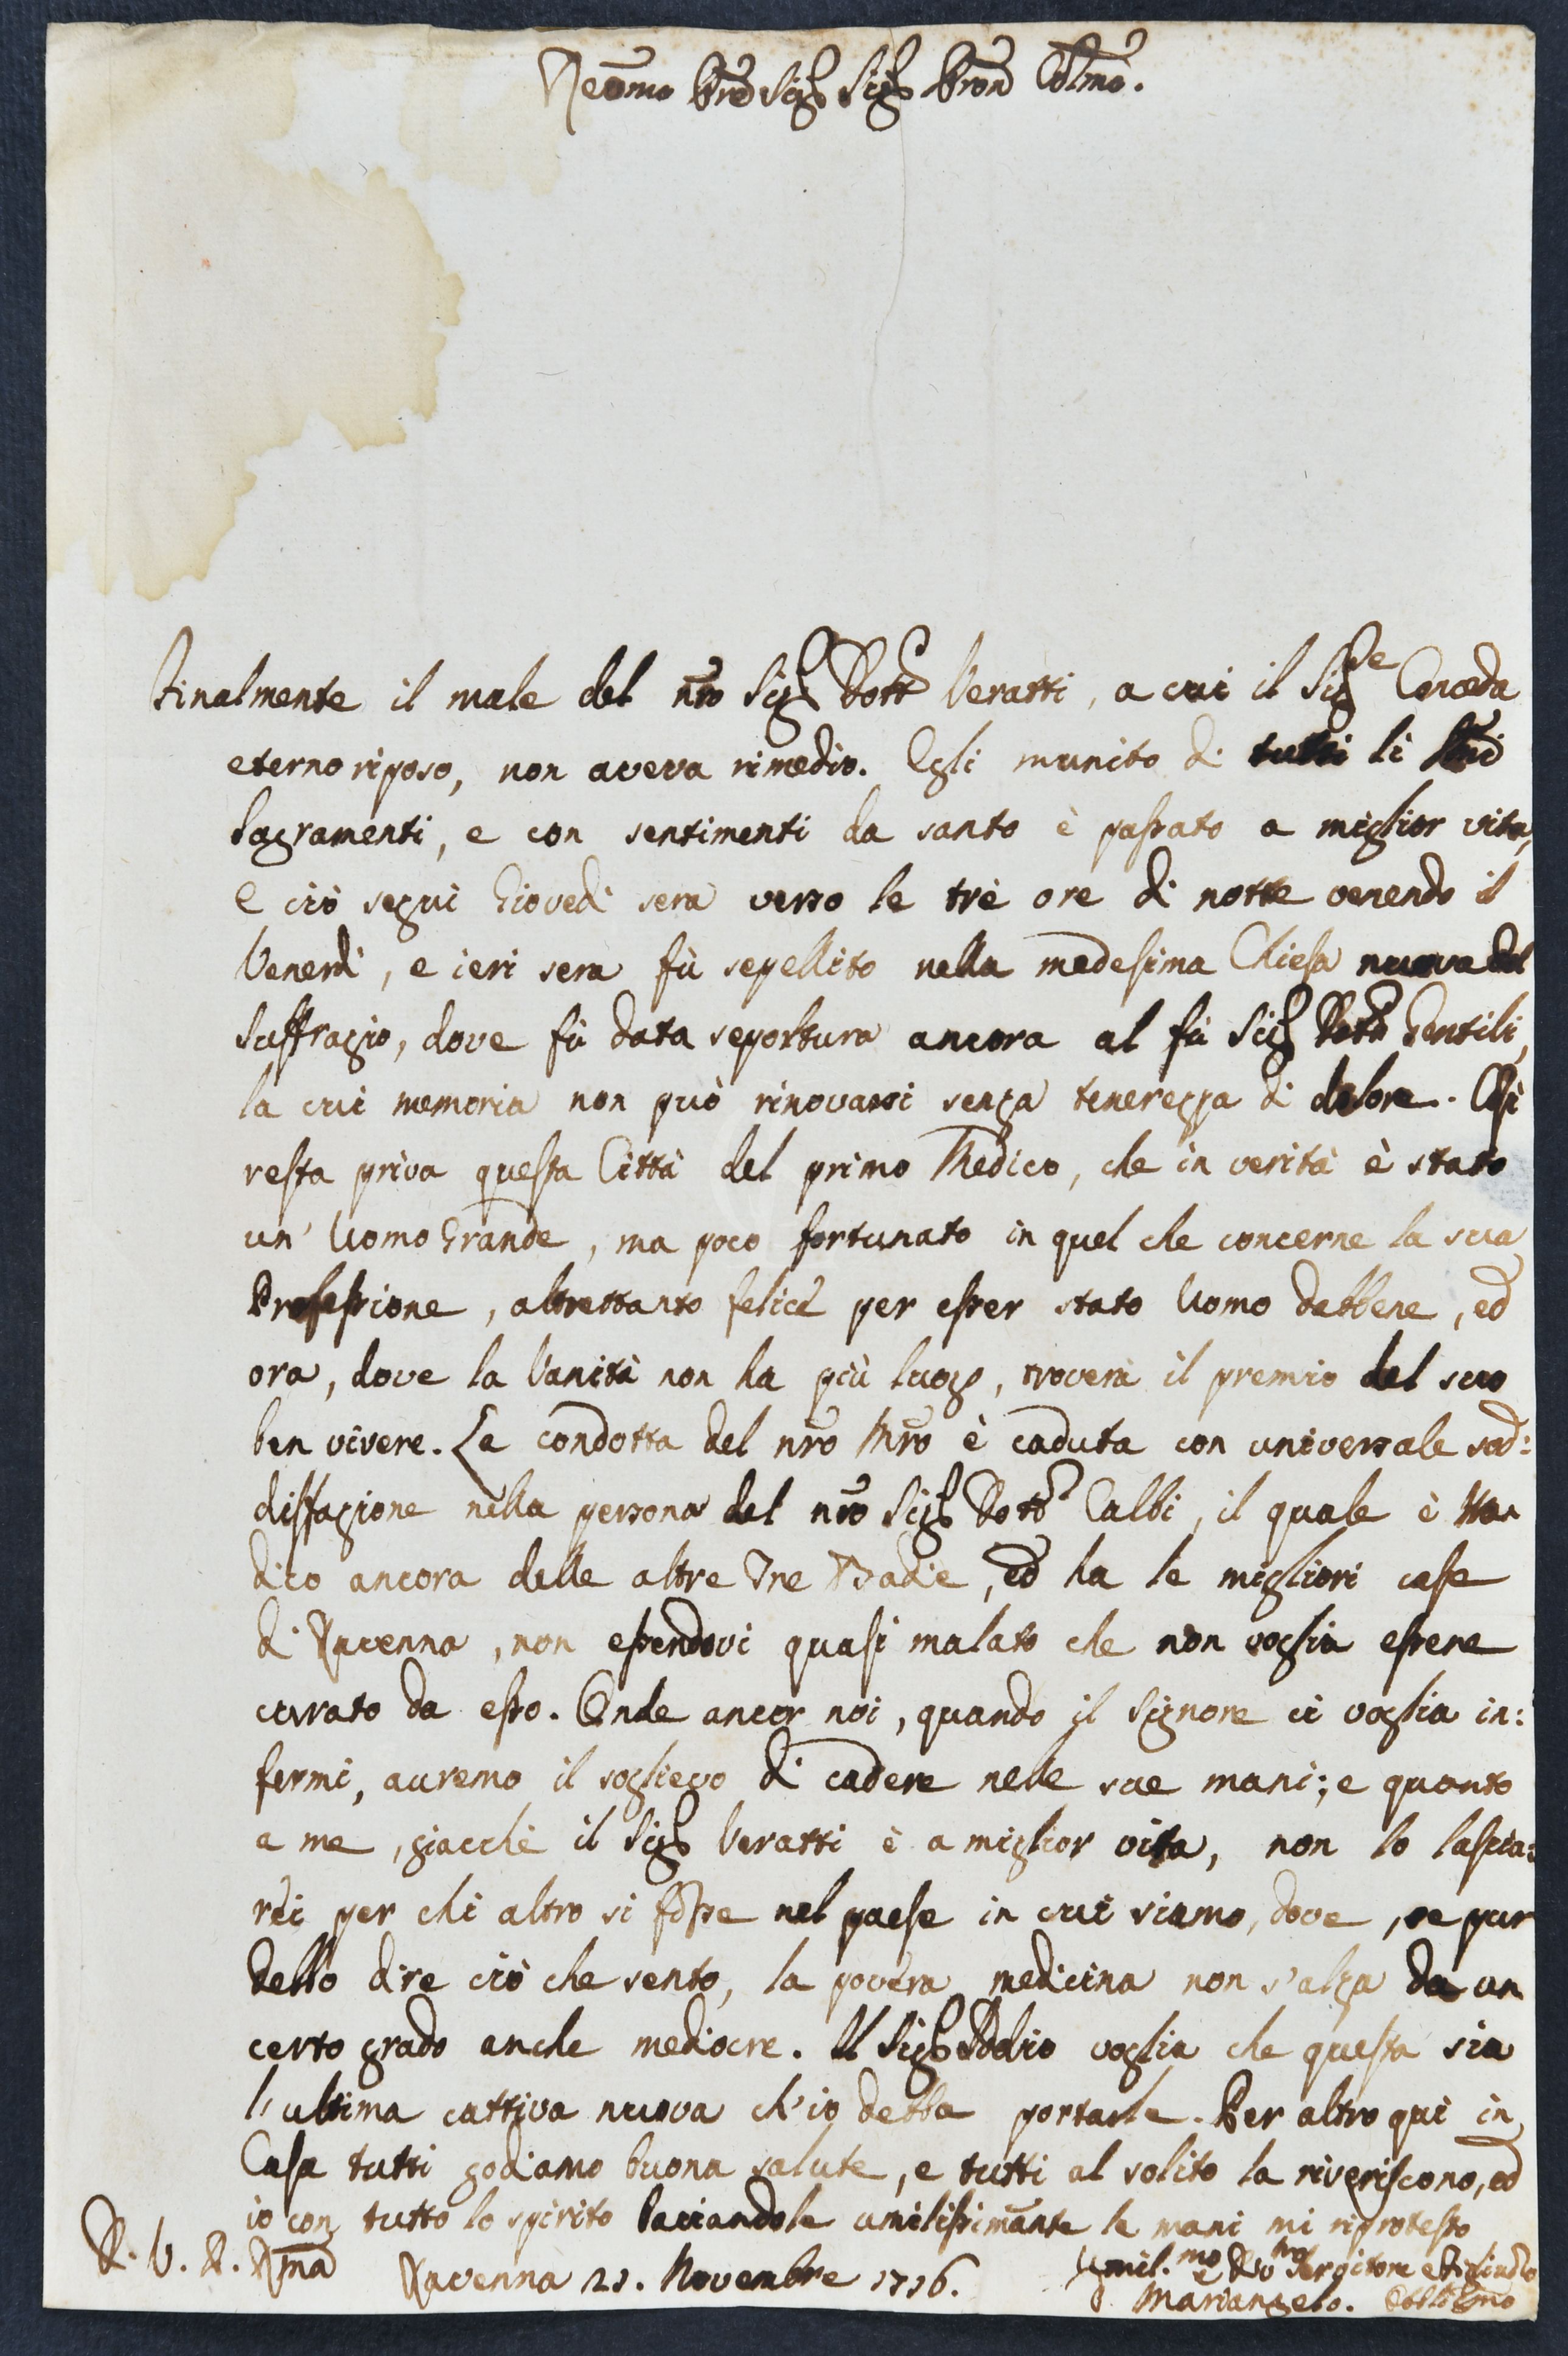 Revmo Pre Sigr Sigr Pron Colmo.
Finalmente il male del nro Sigr Dottr Veratti, a cui il Sigre Conceda
eterno riposo, non aveva rimedio. Egli munito di tutti li Smi
Sagramenti, e con sentimenti da santo è passato a miglior vita,
e ciò seguì Giovedì sera verso le trè ore di notte venendo il
Venerdì, e ieri sera fù sepellito nella medesima Chiesa nuova del
Suffragio, dove fù data sepoltura ancora al fù Sigr Dottr Gentili,
la cui memoria non può rinovarsi senza tenerezza di dolore. Così
resta priva questa Città del primo Medico, che in verità è stato
un' Uomo Grande, ma poco fortunato in quel che concerne la sua
Professione, altrettanto felice per esser stato Uomo dabbene, ed
ora, dove la Vanità non ha più luogo, troverà il premio del suo
ben vivere. La condotta del nro Mro è caduta con universale sod:
disfazione nella persona del nro Sigr Dottr Calbi, il quale è Me
dico ancora delle altre Tre Badie, ed ha le migliori case
di Ravenna, non essendovi quasi malato che non voglia essere
curato da esso. Onde ancor noi, quando il Signore ci voglia in:
fermi, auremo il soglievo di cadere nelle sue mani; e quanto
a me, giacchè il Sigr Veratti è a miglior vita, non lo lascia:
rei per chi altro si fosse nel paese in cui siamo, dove, se pur
debbo dire ciò che sento, la povera medicina non s'alza da un
certo grado anche mediocre. Il Sigr Iddio voglia che questa sia
l'ultima cattiva nuova ch'io debba portarle. Per altro qui in
Casa tutti godiamo buona salute, e tutti al solito la riveriscono, ed
io con tutto lo spirito baciandole umilissimamte le mani mi riprotesto
D. V. P. Rma Ravenna 21. Novembre 1716.
Umil.mo e Dvmo Servitore e Figliuolo
D. Mariangelo. Obbligmo